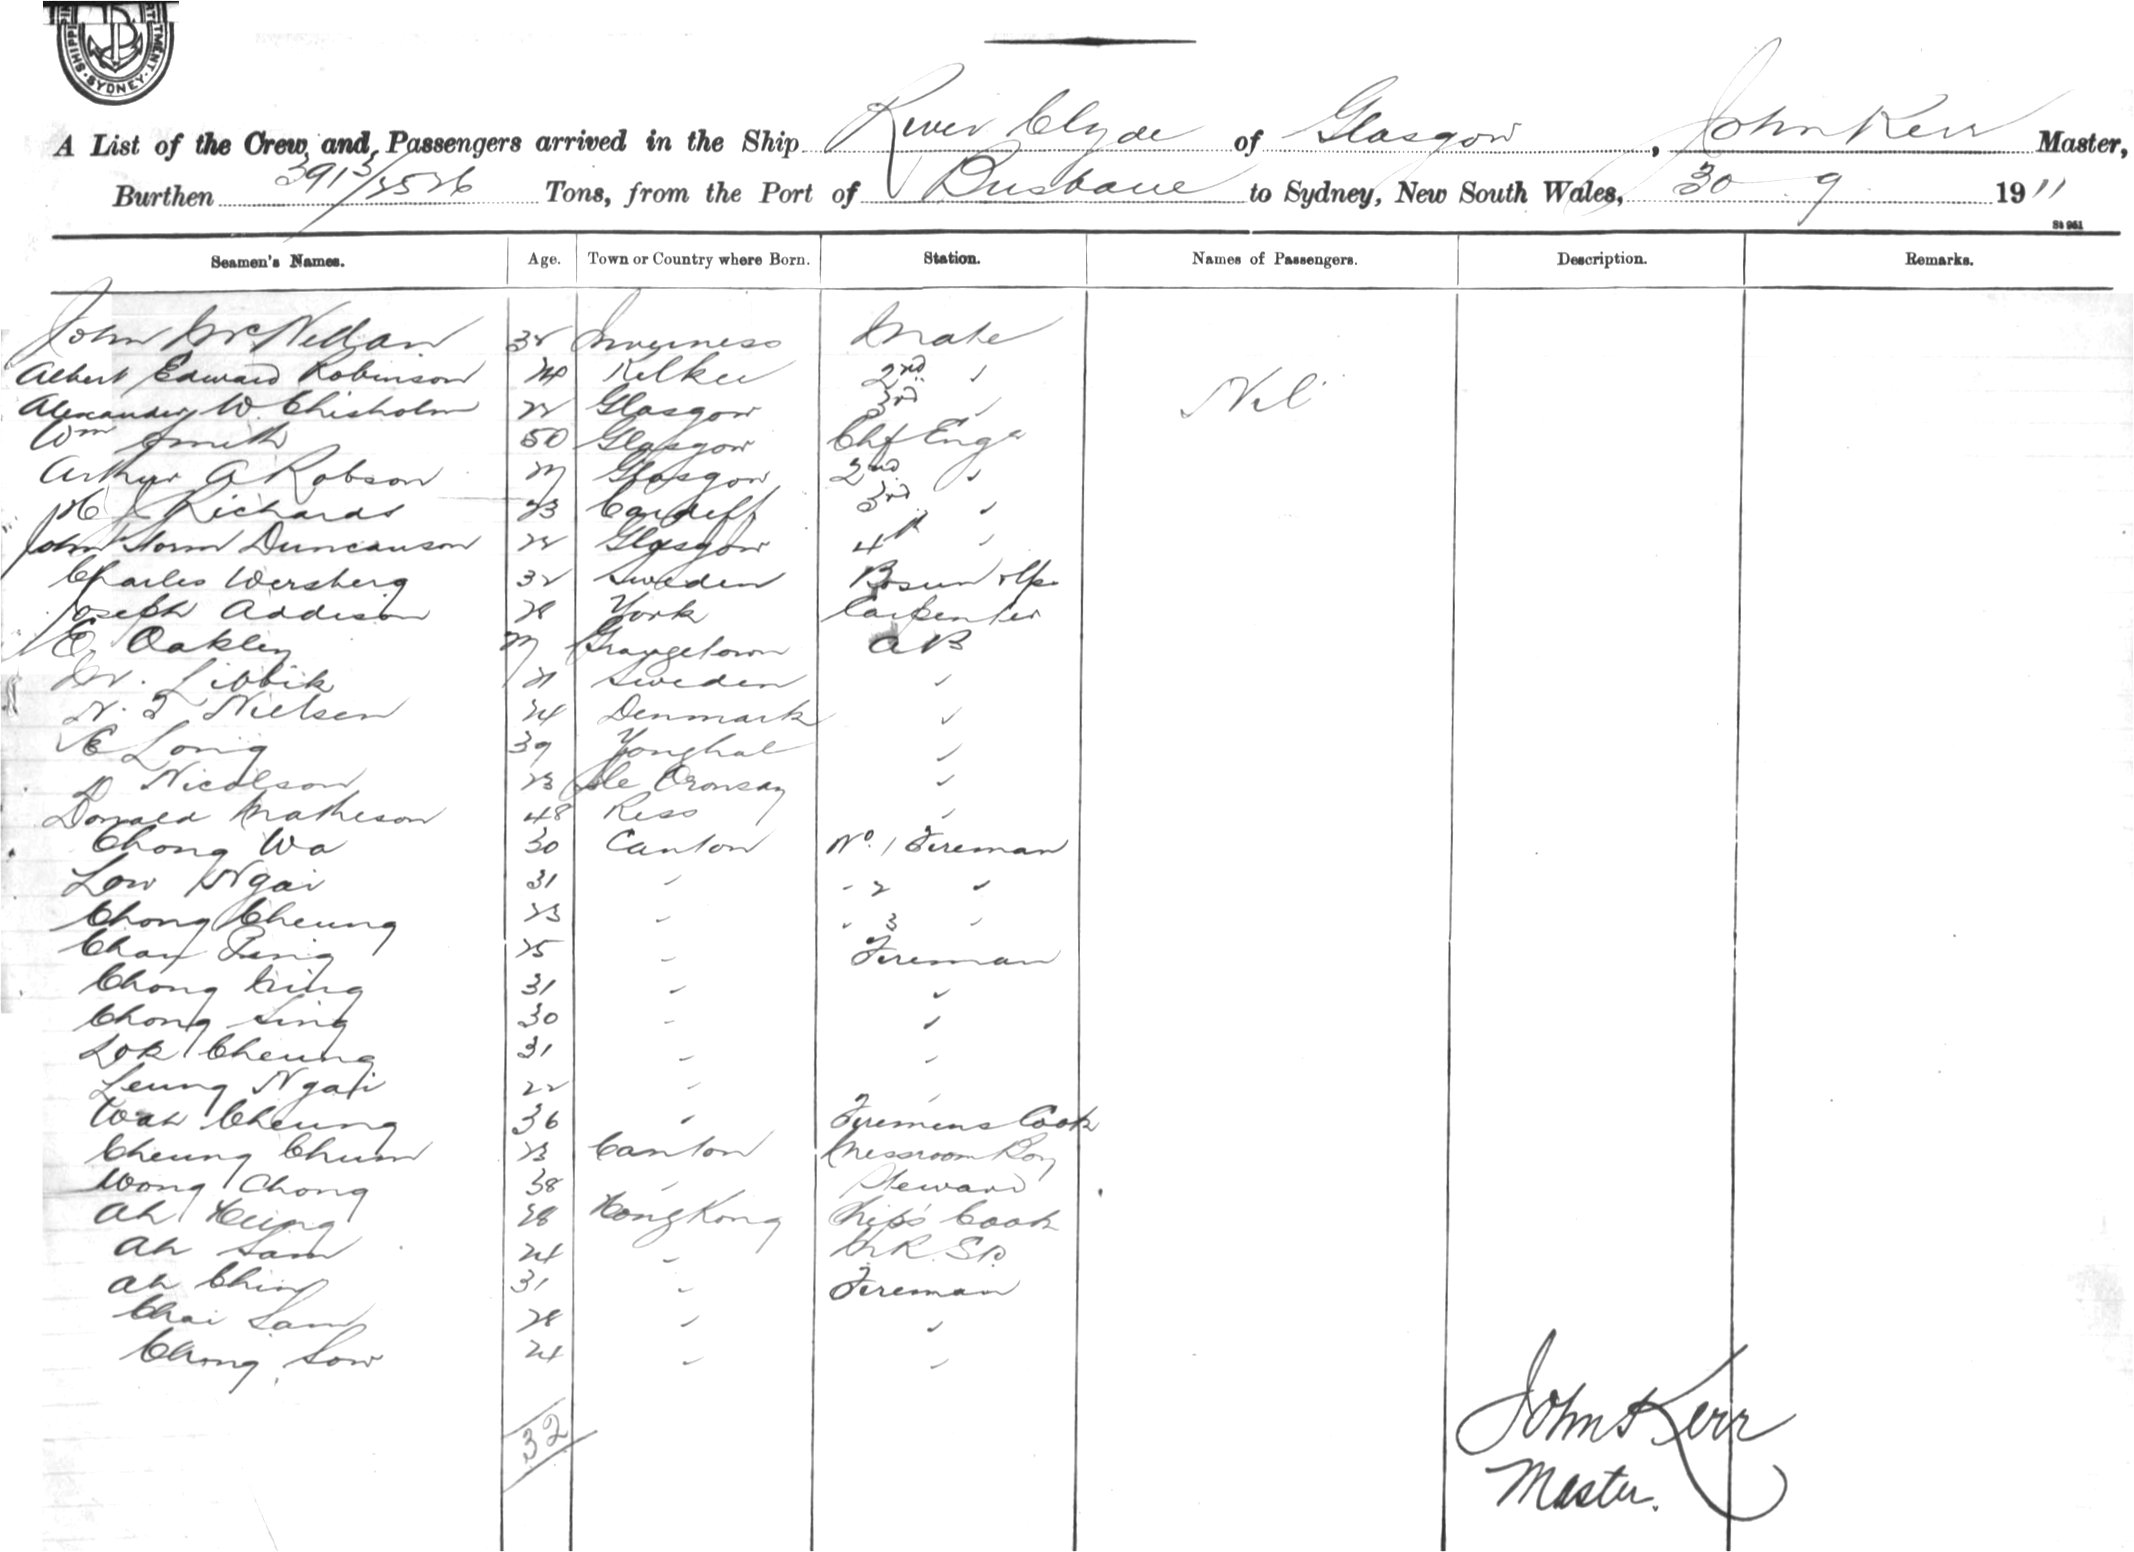 SHIPPI
RTMENT · SYDNEY ·
A List of the Crew and Passengers arrived in the Ship River Clyde of Glasgow, John Kerr Master,
Burthen 3913/2526 Tons, from the Port of Brisbane to Sydney, New South Wales, 30 9 1911
St 951
Seamen's Names. Age. Town or Country where Born. Station. Names of Passengers. Description. Remarks.
John McNellan 32 Inverness Mate
Albert Edward Robinson 24 Kilkee 2nd "
Alexander W. Chisholm 22 Glasgow 3rd " Nil
Wm Smith 50 Glasgow Chf Engr
Arthur A Robson 27 Glasgow 2nd "
Richards 23 Cardiff 3rd "
John Storm Duncanson 22 Glasgow 4th "
Charles Wersberg 32 Sweden Bosun
Joseph Addison 28 York Carpenter
E. Oakley 27 Grangetown AB
Libbik 21 Sweden "
N. J Nielsen 24 Denmark "
E Long 39 Yonghal "
D Nicolson 23 Isle Oronsay "
Donald Matheson 48 Ross "
Chong Wa 30 Canton No. 1 Fireman
Low Ngai 31 " " 2 "
Chong Cheung 23 " " 3 "
Chan Ping 25 " Fireman
Chong 31 " "
Chong Sing 30 " "
Lok Cheung 31 " "
Leung Ngai 22 " "
Wah Cheung 36 " Firemens Cook
Cheung Chum 23 Canton Messroom Boy
Wong Chong 38 " Steward
Ah 28 Hong Kong Ship's Cook
Ah Sam 24 " M R. Sd.
Ah Ching 31 " Fireman
Chai Sam 28 " "
Chong Sow 24 " "
32
John Kerr
Master.